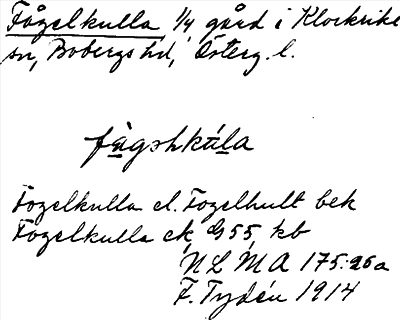 Fågelkulla 1/4 gård i Klockrike
sn, Bobergs hd, Österg. l.
fàgəhkúla
Fogelkulla el. Fogelhult bek
Fogelkulla ek, G 55, kb
N L M A 175:26a
F. Tydén 1914